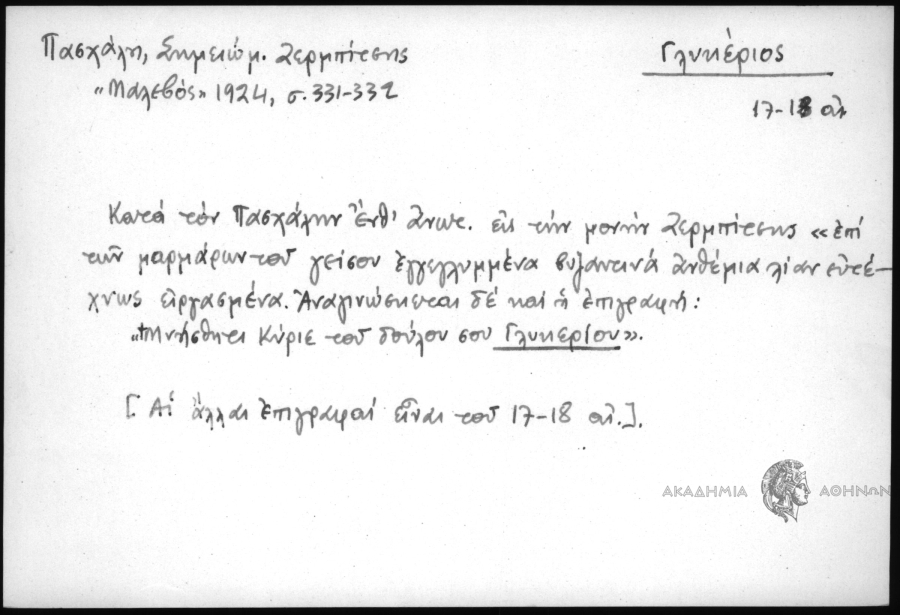 Πασχάλη, Σημειώμ. Ζερμπίτσης
Γλυκέριος
«Μαλεβός» 1924, σ. 331-332
17-18 αἰ.
Κατά τόν Πασχάλην ἔνθ' ἄνωτ. εἰς τήν μονήν Ζερμπίτσης «ἐπί
τῶν μαρμάρων τοῦ γείσου ἐγγεγλυμμένα βυζαντινά ἀνθέμια λίαν εὐτέ-
χνως εἰργασμένα. Ἀναγινώσκεται δέ καί ἡ ἐπιγραφή:
«+Μνήσθητι Κύριε τοῦ δούλου σου Γλυκερίου».
[Αἱ ἄλλαι ἐπιγραφαί εἶναι τοῦ 17-18 αἰ.].
ΑΚΑΔΗΜΙΑ ΑΘΗΝΩΝ